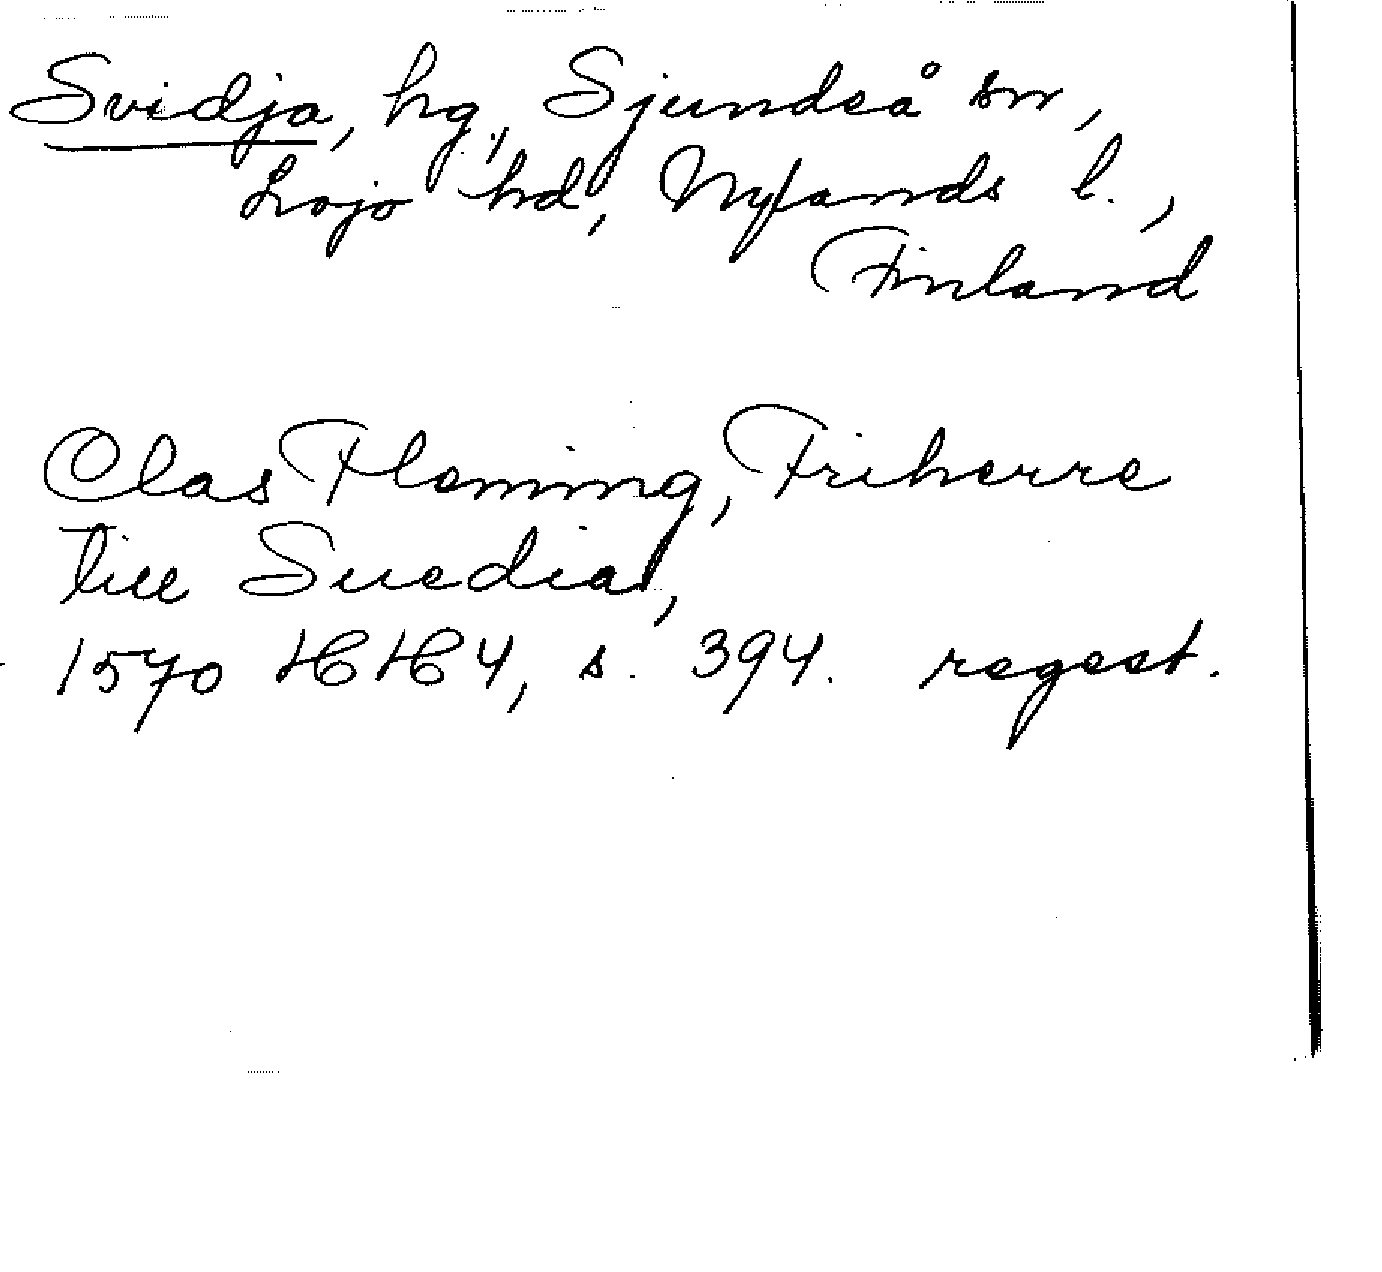 Svidja, hg, Sjundeå sn,
Lojo hd, Nylands l.,
Finland
Clas Fleming, Friherre
till Suedia,
1570 HH 4, s. 394. regest.